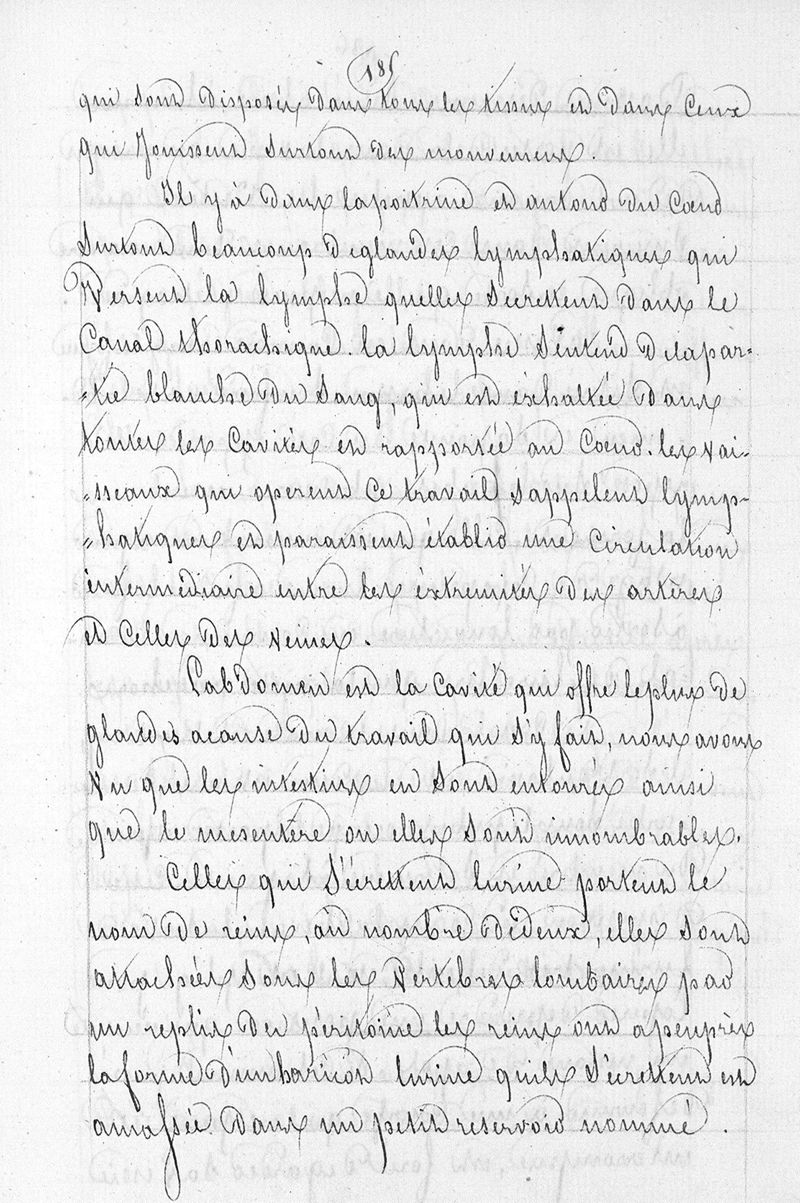 185
qui sont disposés dans tous les tissus et dans ceux
qui Jouissent surtout des mouvemens.
Il y à dans lapoitrine et autour du Cœur
Surtout beaucoup deglandes lymphatiques qui
Versent la lymphe quelles Sécrettent dans le
Canal thorachique. la lymphe S'entend delapar-
-tie blanche du Sang, qui est éxhaltée dans
toutes les Cavités et rapportée au Cœur. les vai-
-sseaux qui operent ce travail s'appelent lymp-
-hatiques et paraissent établir une Circulation
intermédiaire entre les éxtremités des artères
et Celles des veines.
L'abdomen est la Cavité qui offre leplus de
glandes acause du travail qui s'y fait, nous avons
vu que les intestins en Sont entourés ainsi
que le mesentère ou elles sont innombrables.
Celles qui Sécrettent lurine portent le
nom de reins, au nombre dedeux, elles sont
attachées sous les Vertebres lombaires par
un replis du péritoine les reins ont apeuprès
la forme d'unharicot lurine quils Sécrettent est
amassée dans un petit reservoir nommé.